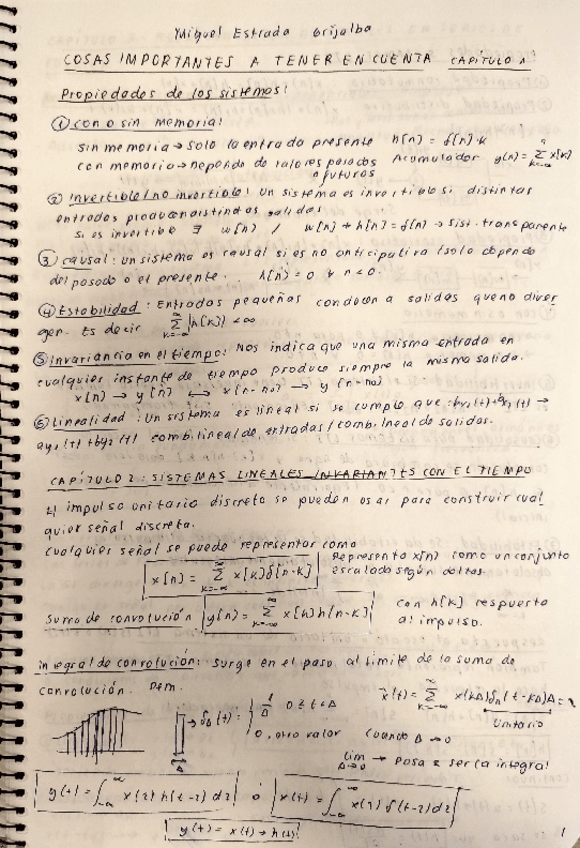 Miguel Estrada Grijalba
COSAS IMPORTANTES A TENER EN CUENTA CAPITULO 1
Propiedades de los sistemas:
① con o sin memoria:
sin memoria → solo la entrada presente h[n] = δ[n]·k
con memoria → Depende de valores pasados o futuros Acumulador y[n] = Σ_{k=-∞}^{n} x[k]
② Invertible/no invertible: Un sistema es invertible si distintas
entradas producen distintas salidas
Si es invertible ∃ w[n] / w[n] * h[n] = δ[n] → Sist. transparente
③ causal: un sistema es causal si es no anticipativa (solo depende
del pasado o el presente. h[n] = 0 ∀ n < 0.
④ Estabilidad: Entradas pequeñas conducen a salidas que no diver
gen. Es decir Σ_{k=-∞}^{∞} |h[k]| < ∞
⑤ Invariancia en el tiempo: Nos indica que una misma entrada en
cualquier instante de tiempo produce siempre la misma salida.
x[n] → y[n] ↔ x[n-n0] → y[n-n0]
⑥ Linealidad: Un sistema es lineal si se cumple que →
ay1(t) + by2(t) comb. lineal de entradas / comb. lineal de salidas.
CAPÍTULO 2: SISTEMAS LINEALES INVARIANTES CON EL TIEMPO
El impulso unitario discreto se pueden usar para construir cual
quier señal discreta.
Cualquier señal se puede representar como
x[n] = Σ_{k=-∞}^{∞} x[k] δ[n-k] Representa x[n] como un conjunto
escalado según deltas.
Suma de convolución y[n] = Σ_{k=-∞}^{∞} x[k] h[n-k] con h[k] respuesta
al impulso.
integral de convolución: surge en el paso al límite de la suma de
convolución. Dem.
→ δΔ(t) = { 1/Δ 0 ≤ t < Δ
0, otro valor
x̂(t) = Σ_{k=-∞}^{∞} x(kΔ) δΔ(t-kΔ)Δ =
Unitario
Δ
cuando Δ → 0
lim Δ→0 → pasa a ser la integral
y(t) = ∫_{-∞}^{∞} x(τ) h(t-τ) dτ ó x(t) = ∫_{-∞}^{∞} x(τ) δ(t-τ) dτ
y(t) = x(t) * h(t)
1